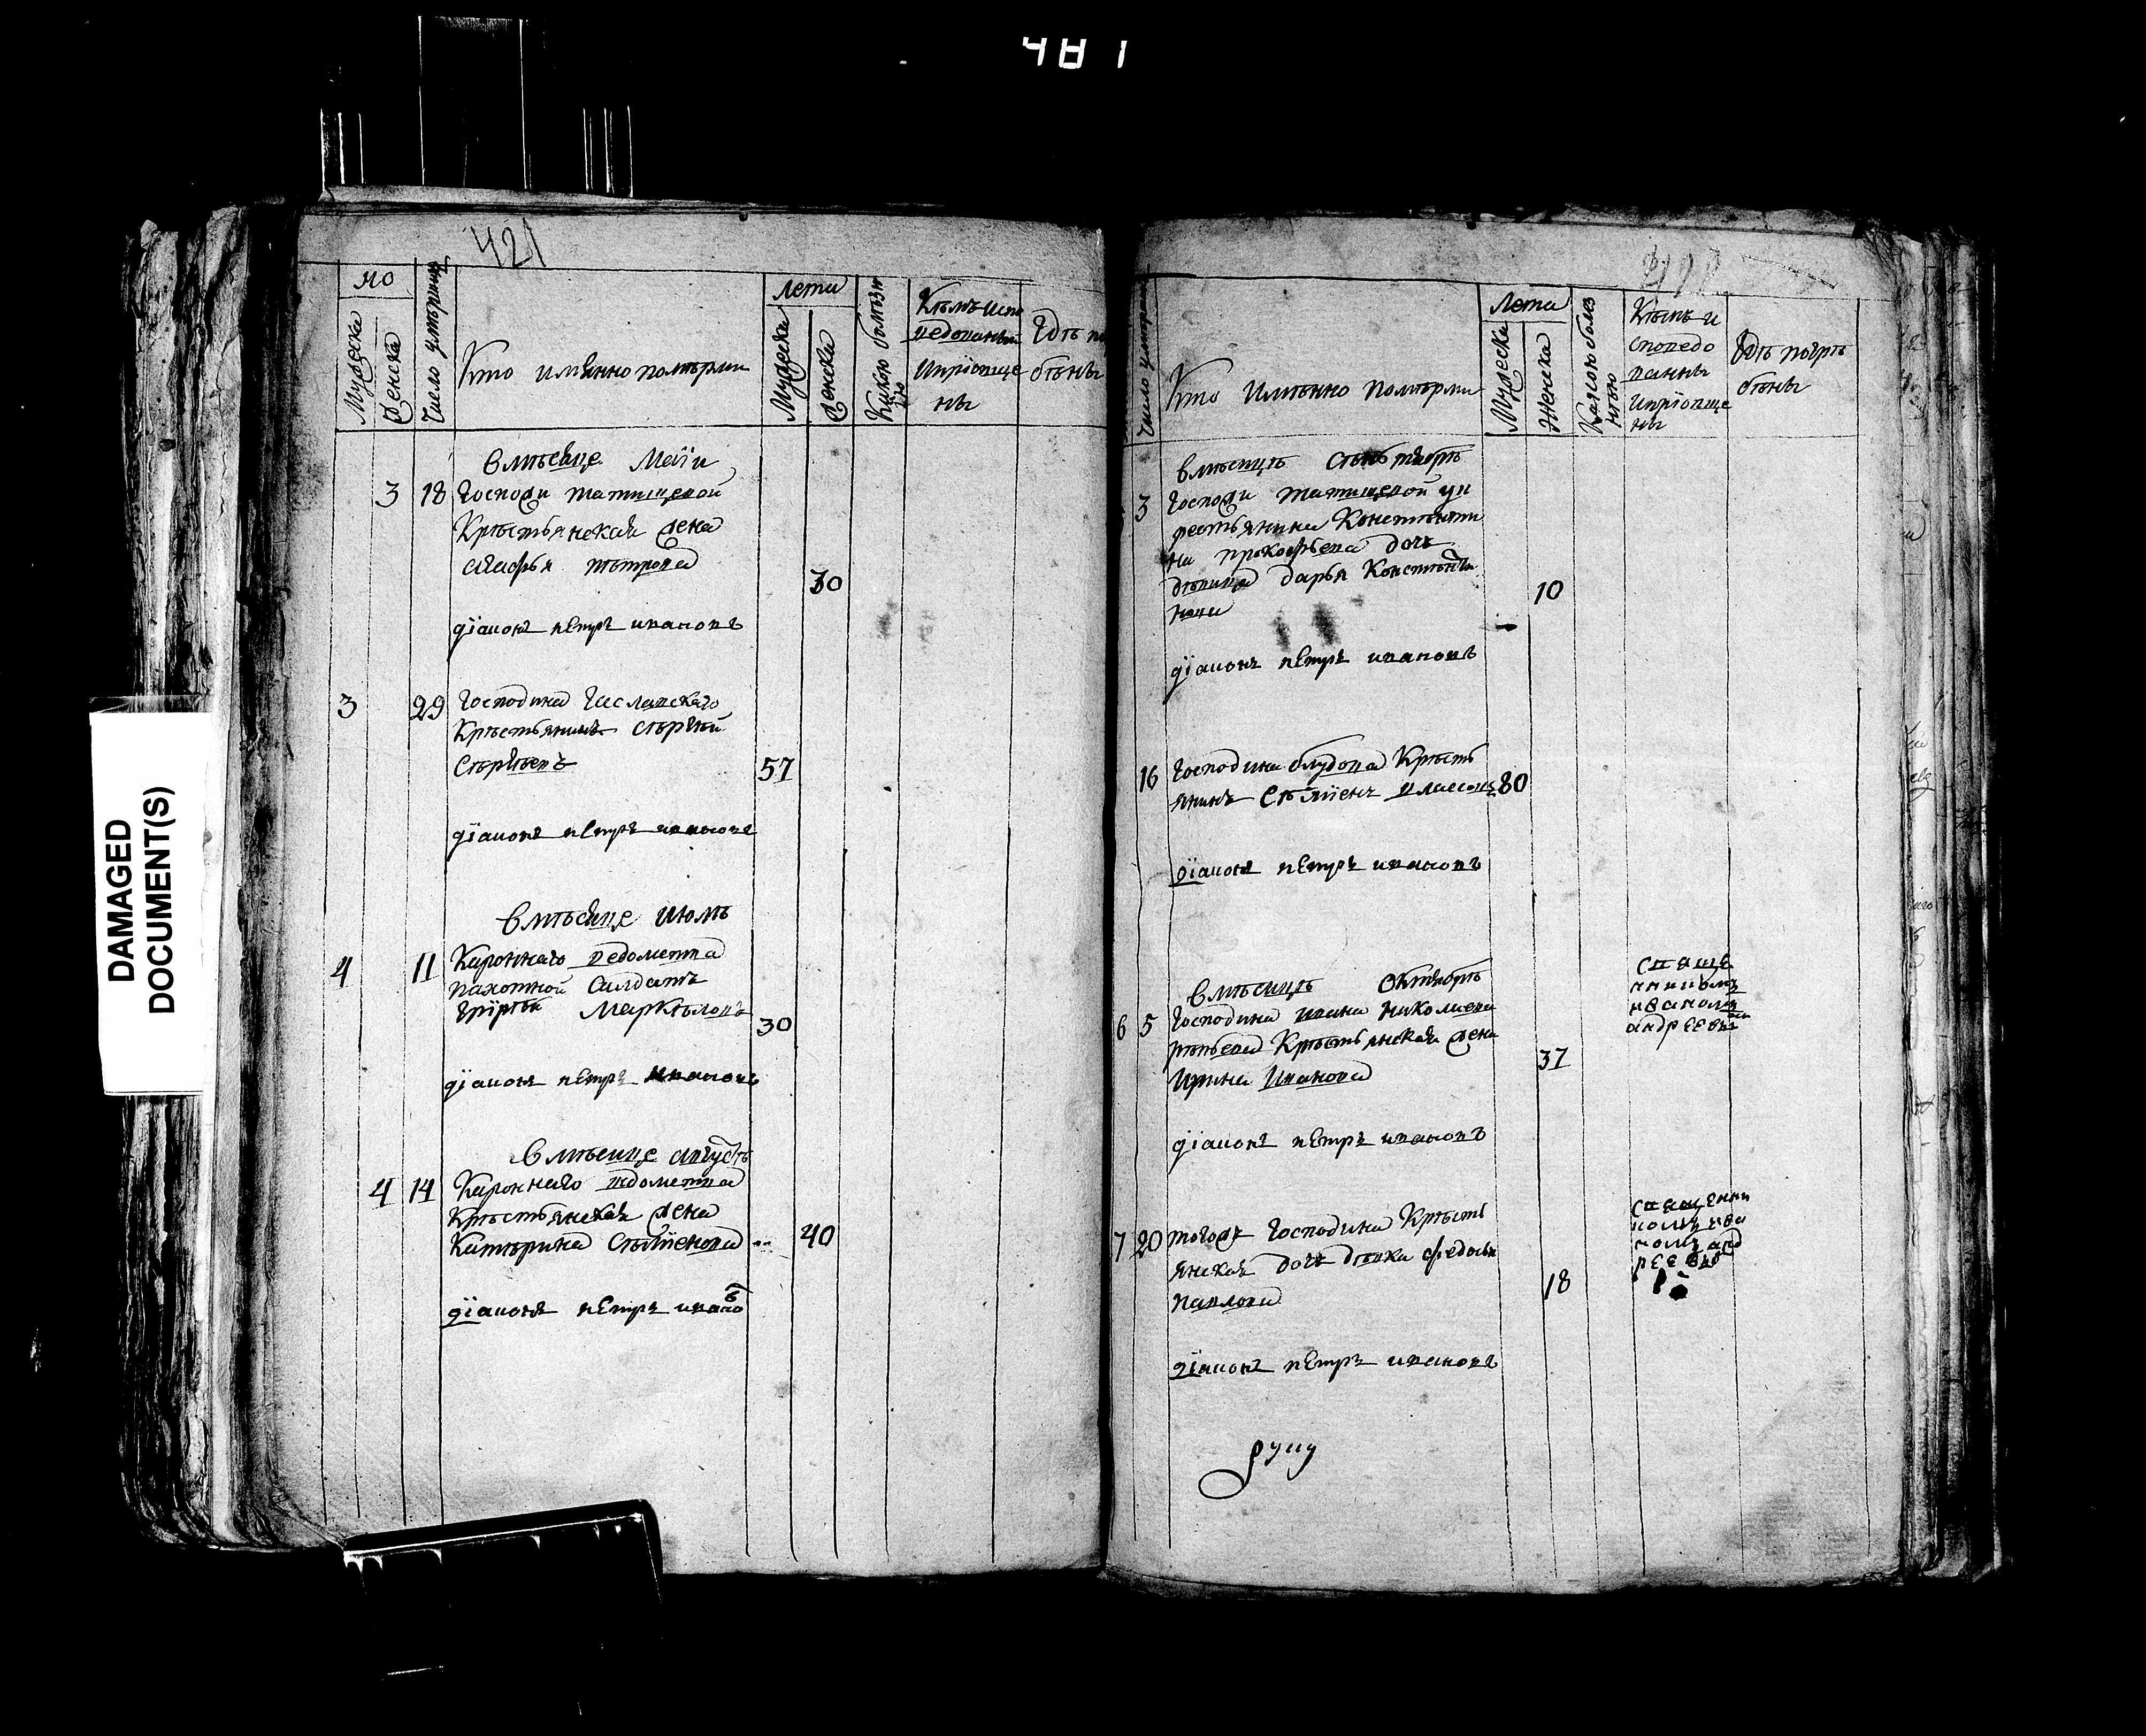 481
421
DAMAGED
DOCUMENT(S)
№
Мужеска
Женска
Число умершихъ
Кто имянно помѣрли
Лета
Мужеска
Женска
Какою болѣзн
ию
Кѣмъ испо
ведованы
и приопще
ны
Гдѣ по
бѣны
в мѣсяце Маїи
3 18 Госпожи татищевой
Крѣстьянская жена
агафья пѣтрова
30
дїаконъ пЕтръ ивановъ
3 29 Господина
Крѣстьянинъ сѣргѣй
Сѣргѣевъ 57
дїаконъ пЕтръ ивановъ
в мѣсяце июлѣ
4 11 Каронного ведомства
пахотной салдатъ
Маркѣловъ
30
дїаконъ пЕтръ ивановъ
в мѣсяце августѣ
4 14 Каронного ведомства
Крѣстьянская жена
Катѣрина Сѣмїенова 40
дїаконъ пЕтръ ивано в
Число умерших
Кто имѣнно помѣрли
Лета
Мужеска
Женска
Какою болез
нѣю
Кѣмъ и
споведо
ванны
и приопще
ны
Гдѣ погрѣ
бѣны
в мѣсицѣ сѣнтябрѣ
3 Госпожи татищевой ук
рестьянина Констянти
на прокофьева дочь
дѣвица дарья Констянти
нова
10
дїаконъ пЕтръ ивановъ
16 Господина блудова Крѣсть
янинъ Сѣмїенъ власовъ 80
дїаконъ пЕтръ ивановъ
в мѣсицѣ октябрѣ
6 5 Господина ивана николаева
Крѣстьянская жена
Ирина Иванова
37
свяще
нникомъ
иваномъ
андрЕЕвымъ
дїаконъ пЕтръ ивановъ
7 20 тогожъ Господина Крѣсть
янская дочь дѣвка федосья
павлова
18
священни
комъ ива
номъ анд
рЕЕвы
дїаконъ пЕтръ ивановъ
руку